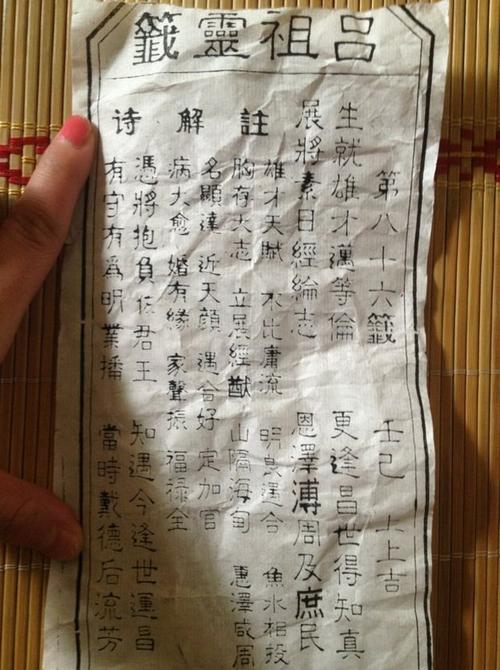 呂祖靈籤
第八十六籤 壬己 上上吉
生就雄才邁等倫 更逢昌世得知真
展將素日經綸志 恩澤溥周及庶民
註
雄才天賦 不比庸流 明良遇合 魚水相投
胸存大志 立展經猷 山隔海甸 惠澤咸周
解
名顯達 近天顏 遇合好 定加官
病大愈 婚有緣 家聲振 福祿全
诗
憑將抱負佐君王 知遇今逢世運昌
有守有為明業播 當時戴德后流芳